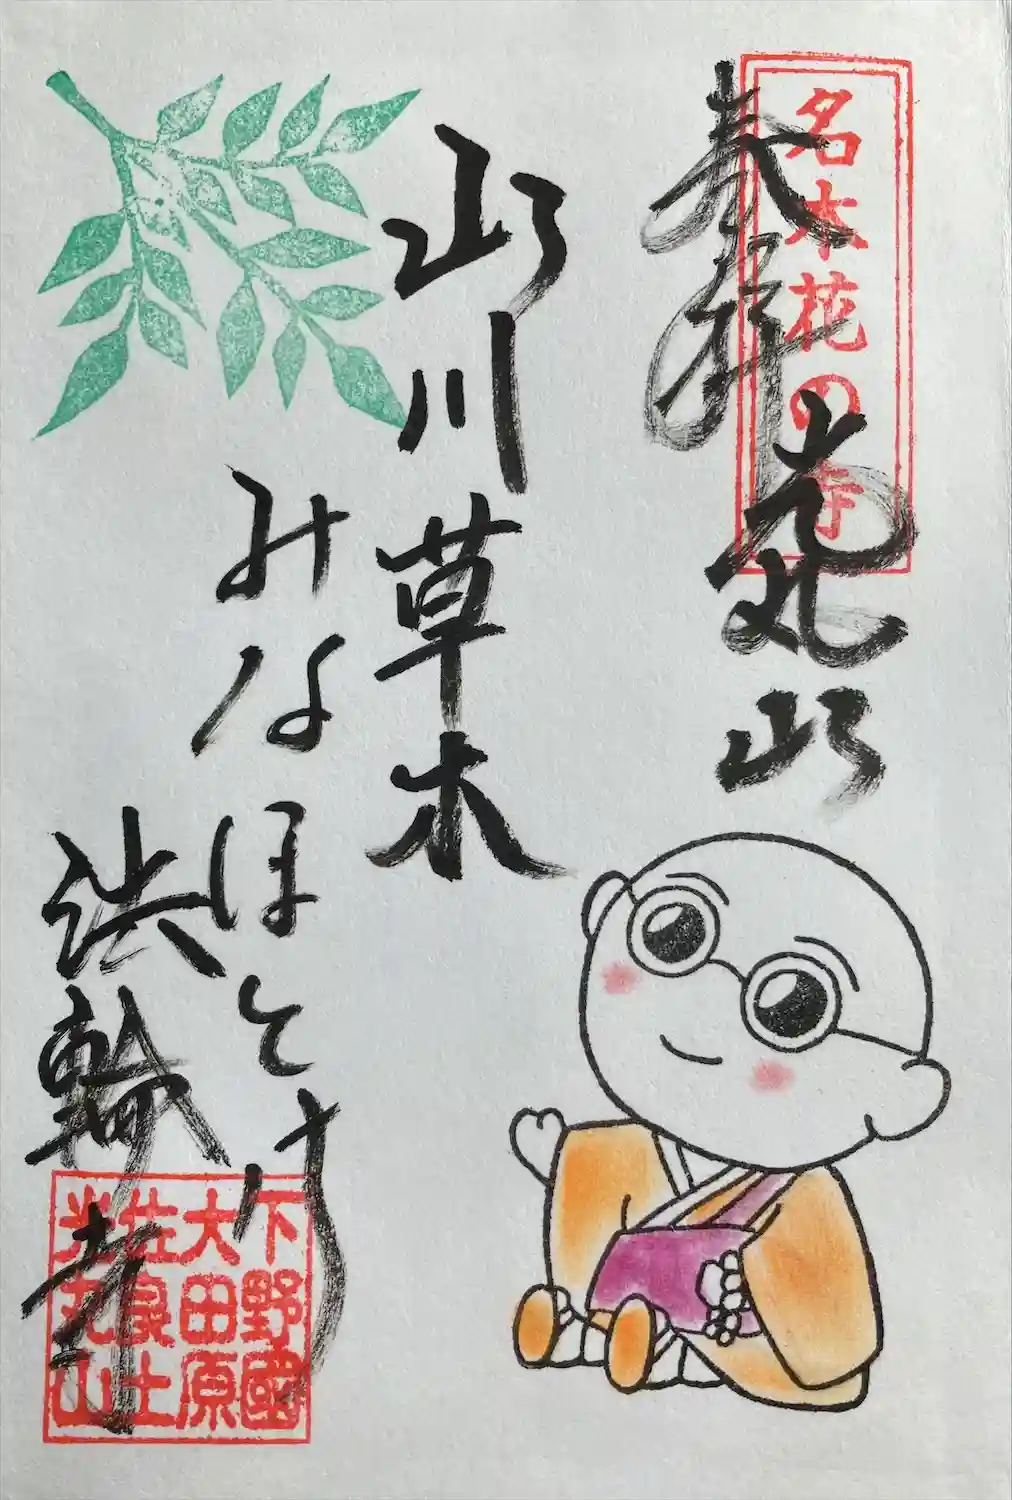 名木花の寺
奉拝
光丸山
山川草木
みな
ほとけ
法輪寺
下野國
大田原
佐良土
光丸山